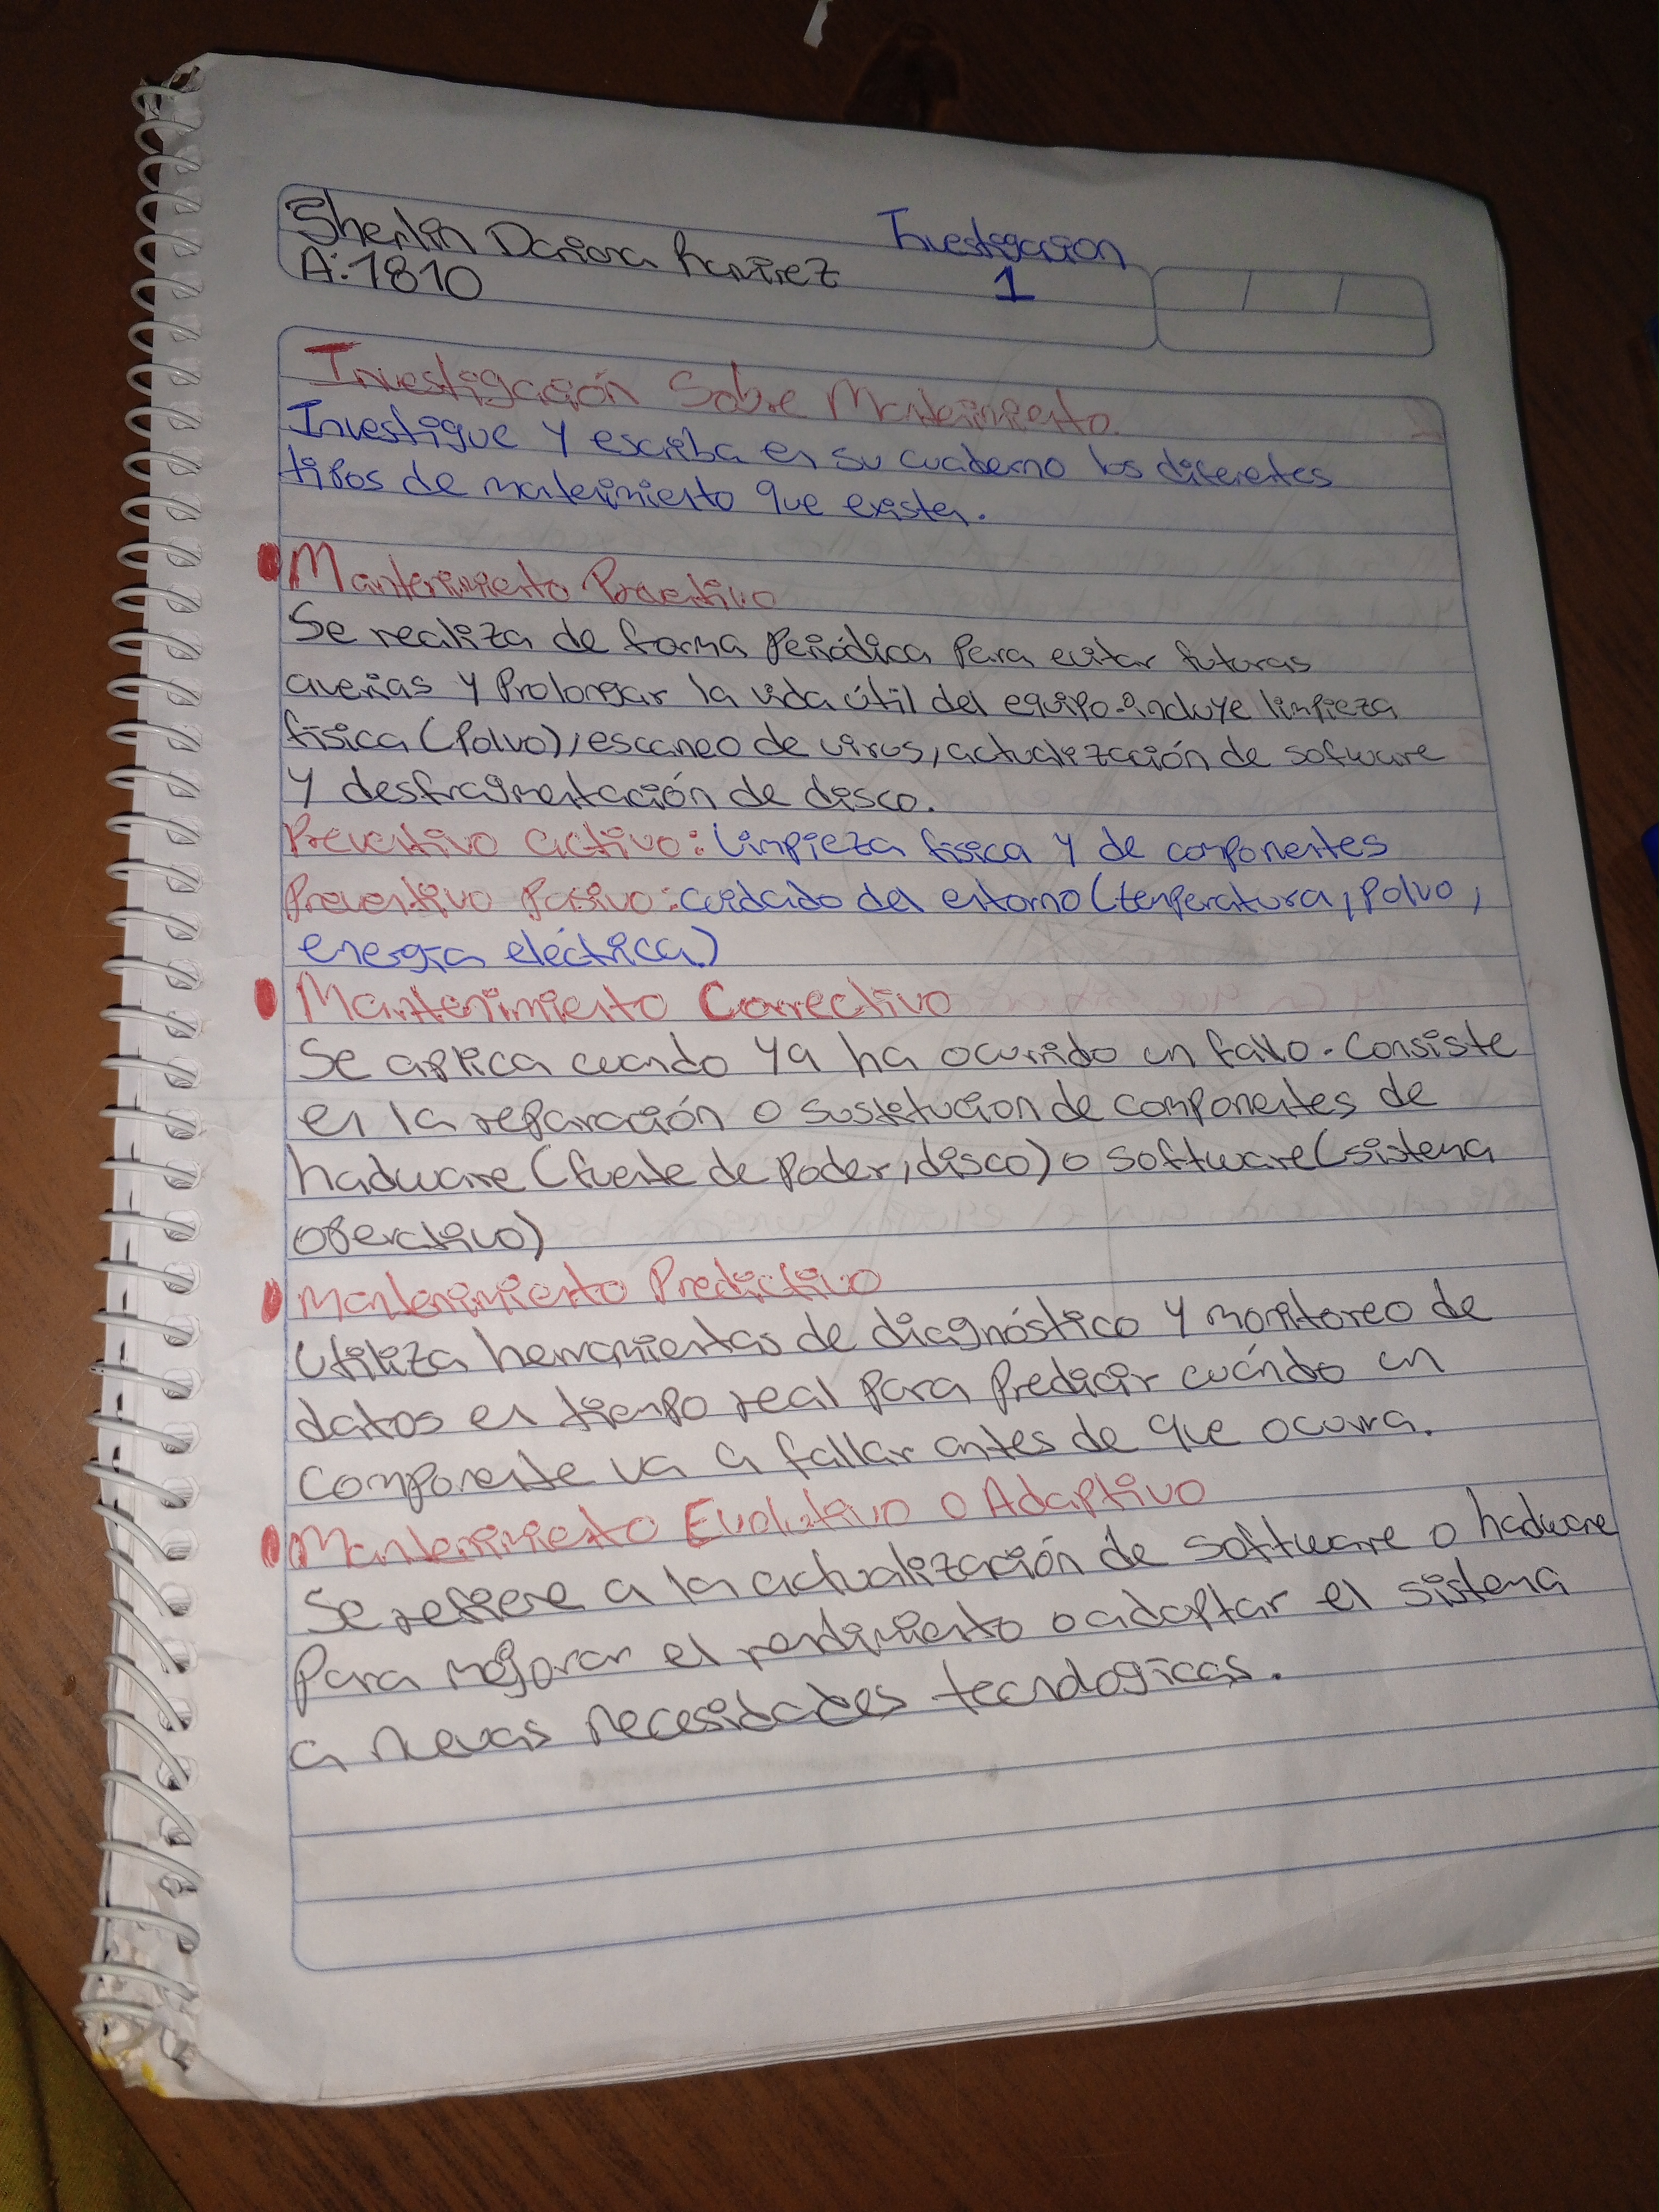 Sherlin Dariana Ramirez
Investigacion
A:1810
1
Investigación Sobre Mantenimiento.
Investigue y escriba en su cuaderno los diferentes
tipos de mantenimiento que existen.
Mantenimiento Preventivo
Se realiza de forma Periódica Para evitar futuras
averias y Prolongar la vida útil del equipo. incluye limpieza
física (Polvo), escaneo de virus, actualización de sofware
y desfragmentación de disco.
Preventivo activo: Limpieza física y de componentes
Preventivo Pasivo: cuidado del entorno (temperatura, Polvo,
energía eléctrica)
Mantenimiento Correctivo
Se aplica cuando ya ha ocurrido un fallo. Consiste
en la reparación o sustitucion de componentes de
hadware (fuente de Poder, disco) o software (sistema
operativo)
Mantenimiento Predictivo
Utiliza herramientas de diagnóstico y monitoreo de
datos en tiempo real para Predicir cuándo un
componente va a fallar antes de que ocurra.
Mantenimiento Evolutivo o Adaptivo
Se refiere a la actualización de software o hadware
Para mejorar el rendimiento o adaptar el sistema
a nuevas necesidades tecnologicas.